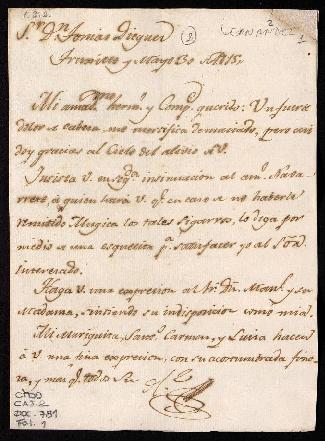 C.2.2.
Sr. Dn. Tomas Dieguez
(8)
2
1
y Mayo 30 de 815,,
Mi amabmo. herm.o y Comp.e querido: Un fuerte
dolor de cabeza, me mortifica demaciado, pero aun
doy gracias al Cielo del alivio de V.
Incista V. en seg.da insinuacion al am.o Nava-
rrete, á quien hará V. q.e en caso de no haberle
remitido Mugica los tales Sigarros, lo diga por
medio de una esquelita p.a satisfacer yo al Sor.
Interesado.
Haga V. una expresion al Sr. Dn. Man.l y su
Madama, sintiendo su indisposicion como mia.
Mi Mariquita, Carmen, y Luisa hacen
á V. una fina expresion, con su acostumbrada fine-
za, y man.e todo Su
CDD
CAJ-2
DOC-781
FOL. 1